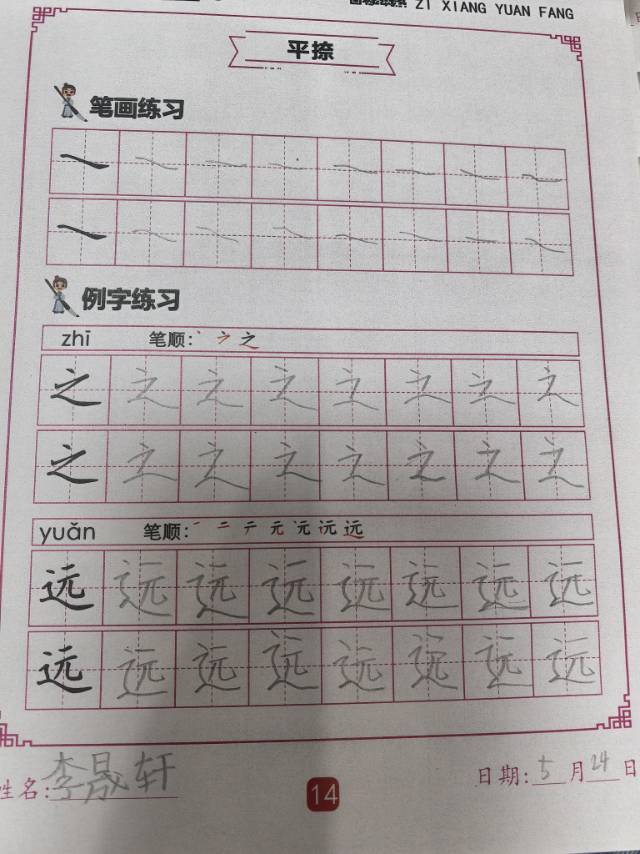 ZI XIANG YUAN FANG
平捺
笔画练习
例字练习
zhī 笔顺: 丶 ㇇ 之
之 之 之 之 之 之 之 之
之 之 之 之 之 之 之 之
yuǎn 笔顺: 一 二 テ 元 元 沅 远
远 远 远 远 远 远 远 远
远 远 远 远 远 远 远 远
姓名: 李晟轩
14
日期: 5 月 24 日